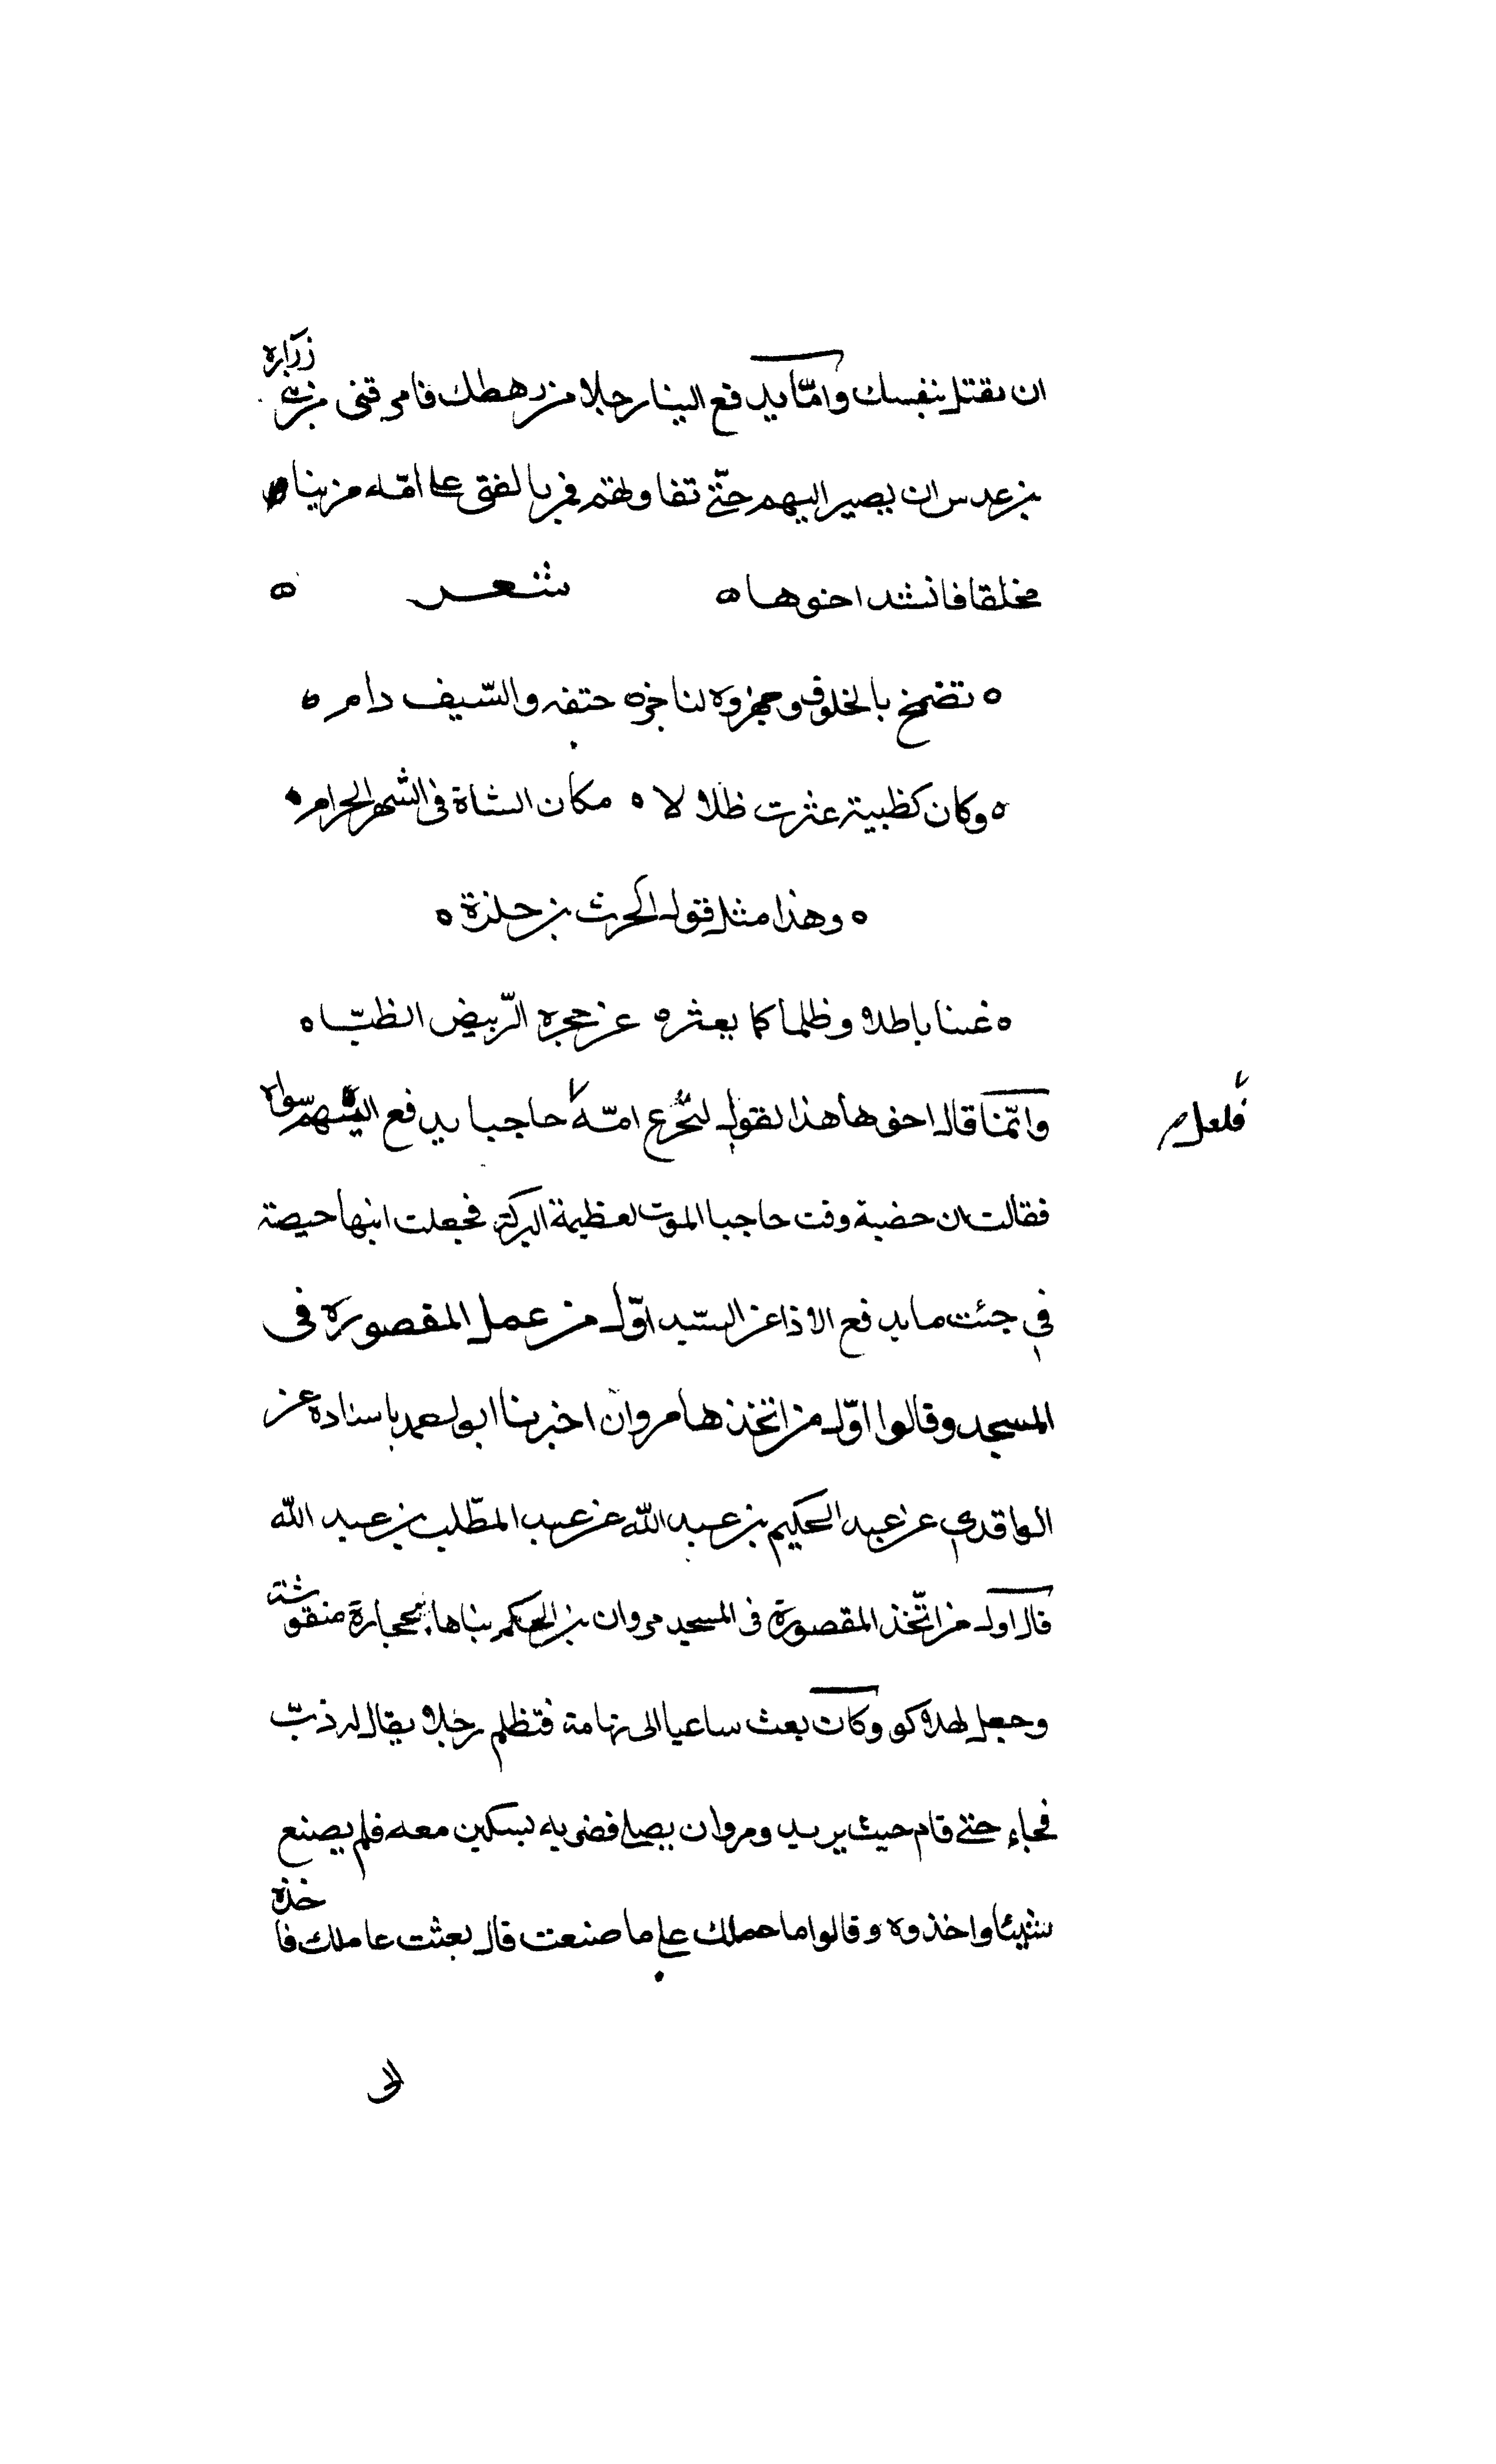 ان تقتل بنفسك وامّا يدفع الينا رجلا من رهطك فامر قتى من بنى زراره
بن عدس ان يصير اليهم حتّى تفاولهتم فمر بالفتى على امّه مزينا
مخلقا فانشد اخوها شعر
تضمخ بالخلوف وجهزوه لناخره حتفه والسّيف دامر
وكان كظبية عثرت ظلالا لا مكان الشاة فى الشهر الحرام
وهذا مثل قول الحرث بن حلزة
عننا باطلا وظلما كما يعثره عن حجره الرّبيض الظبّا
وانّما قال اخوها هذا لقول لتجزع امّه حاجبا يدفع اليهم سواه
فلعل
فقالت ان حضبة وقت حاجبا الموت لعظيمة البركة فجعلت ابنها حيصة
فى جئت ما يدفع الاذا عن السّيد اوّل من عمل المقصوره فى
المسجد وقالوا اوّل من اتخذها مروان اخبرنا ابو احمد باسناده عن
الواقدى عن عبد الحكيم بن عبد الله عن عبد المطّلب بن عبد الله
قال اول من اتّخذ المقصورة فى المسجد مروان بن الحكم بناها بحجارة منقوشة
وجعل لها كو وكان بعث ساعيا الى تهامة فتظلم رجلا يقال له ذبّ
فجاء حتى قام حيث يريد ومروان يصلى فضربه بسكين معه فلم يصنع
شيئا واخذوه وقالوا ما حملك على ما صنعت قال بعثت عاملك فا خذه
الى